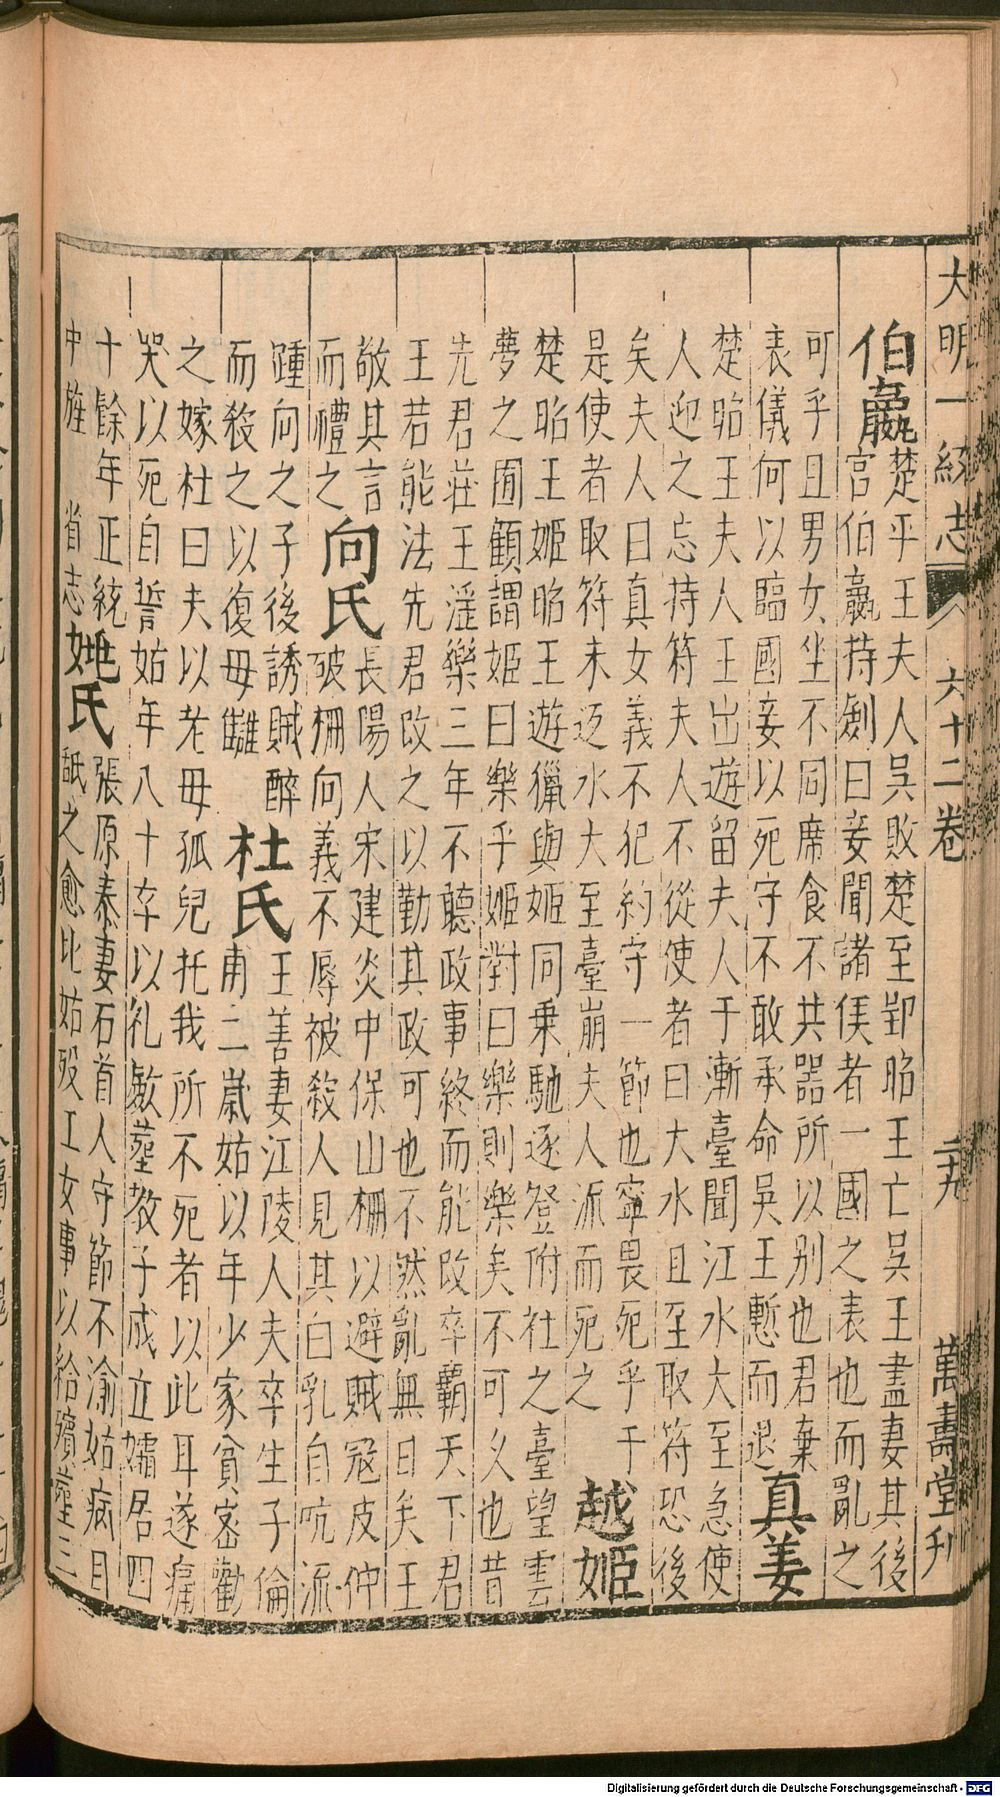 大明一統志 六十二卷 二十九 萬壽堂刋
伯嬴楚平王夫人吳敗楚至郢昭王亡吳王盡妻其後
宮伯嬴持劍曰妾聞諸侯者一國之表也而亂之
可乎且男女坐不同席食不共器所以别也君棄
表儀何以臨國妾以死守不敢承命吳王慙而退真姜
楚昭王夫人王出遊留夫人于漸臺聞江水大至急使
人迎之忘持符夫人不從使者曰大水且至取符恐後
矣夫人曰真女義不犯約守一節也寧畏死乎于
是使者取符未迈水大至臺崩夫人派而死之越姬
楚昭王姬昭王遊獵與姬同乗馳逐登附社之臺望雲
夢之囿顧謂姬曰樂乎姬對曰樂則樂矣不可乆也昔
先君莊王滛樂三年不聽政事終而能改卒霸天下君
王若能法先君改之以勤其政可也不然亂無日矣王
敬其言
而禮之向氏長陽人宋建炎中保山柵以避賊冦皮仲
破柵向義不辱被殺人見其白乳自吭流
踵向之子後誘賊醉
而殺之以復母讎杜氏王善妻江陵人夫卒生子倫
甫二歲姑以年少家貧宻勸
之嫁杜曰夫以老母孤兒托我所不死者以此耳遂痛
哭以死自誓姑年八十卒以礼斂塟教子成立孀居四
十餘年正統
中旌 省志姚氏張原泰妻石首人守節不渝姑病目
䑛之愈比姑殁工女事以給殯塟三
Digitalisierung gefördert durch die Deutsche Forschungsgemeinschaft - DFG